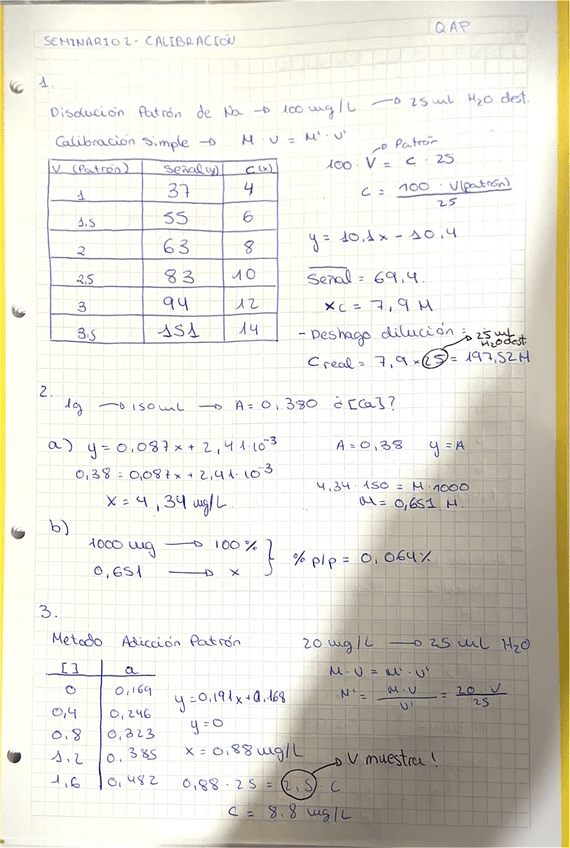 QAP
SEMINARIO 2 - CALIBRACIÓN
1.
Disolución Patrón de Na → 100 mg/L → 25 ml H2O dest.
Calibración simple → M · V = M' · V'
V (Patrón) Señal (y) C (x)
1 37 4
1.5 55 6
2 63 8
2,5 83 10
3 94 12
3.5 151 14
Patrón
100 · V = C · 25
C = 100 · V(patrón) / 25
y = 10,1x - 10,4
Señal = 69,4.
xc = 7,9 M
- Deshago dilución =
25 ml
H2O dest
C real = 7,9 × 25 = 197,52 M
2.
1g → 150 ml → A = 0,380 ¿[Ca]?
a) y = 0,087x + 2,41·10⁻³ A = 0,38 y = A
0,38 = 0,087x + 2,41·10⁻³
x = 4,34 mg/L
4,34 · 150 = M · 1000
M = 0,651 M.
b)
1000 mg → 100 %
0,651 → x
% p/p = 0,064%
3.
Metodo Adicción Patrón 20 mg/L → 25 ml H2O
[ ] a
0 0,169
0,4 0,246
0,8 0,323
1,2 0.385
1,6 0,482
M · V = M' · V'
M' = M · V / V' = 20 V / 25
y = 0,191x + 0,168
y = 0
x = 0,88 mg/L
V muestra!
0,88 · 25 = 2,5 · C
C = 8.8 mg/L